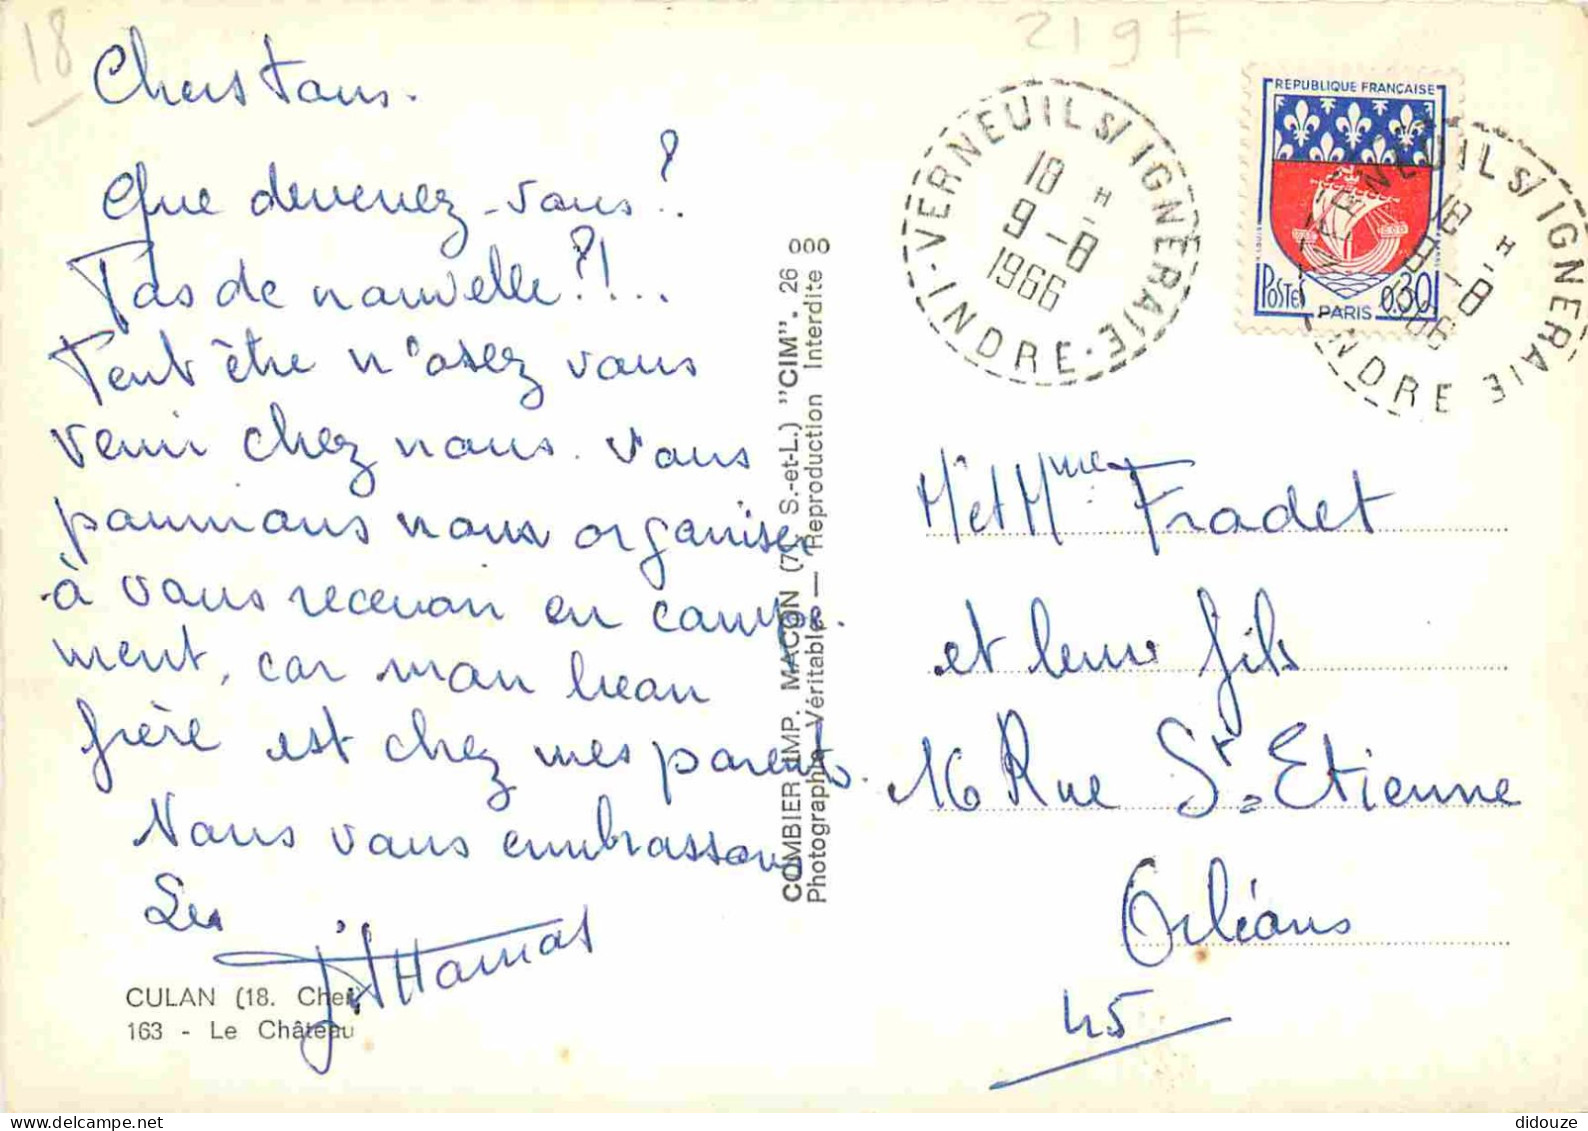 18
219F
Chers Tous.
Que devenez-vous?
Pas de nouvelle?!...
Peut être n'osez vous
venir chez nous. Vous
pourrions nous organiser
à vous recevoir en campe.
ment, car mon beau
frère est chez mes parents.
Nous vous embrassons
Les
CULAN (18. Cher)
163 - Le Château
COMBIER IMP. MACON (71 S.-et-L.) "CIM". 26 000
Photographie Véritable — Reproduction Interdite
VERNEUIL S/ IGNERAIE
18 H
9-8
1966
INDRE
REPUBLIQUE FRANÇAISE
POSTES 0,30
PARIS
VERNEUIL S/ IGNERAIE
18 H
9-8
1966
INDRE
Mr et Mme Fradet
et leur fils
16 Rue St Etienne
Orléans
45
didouze